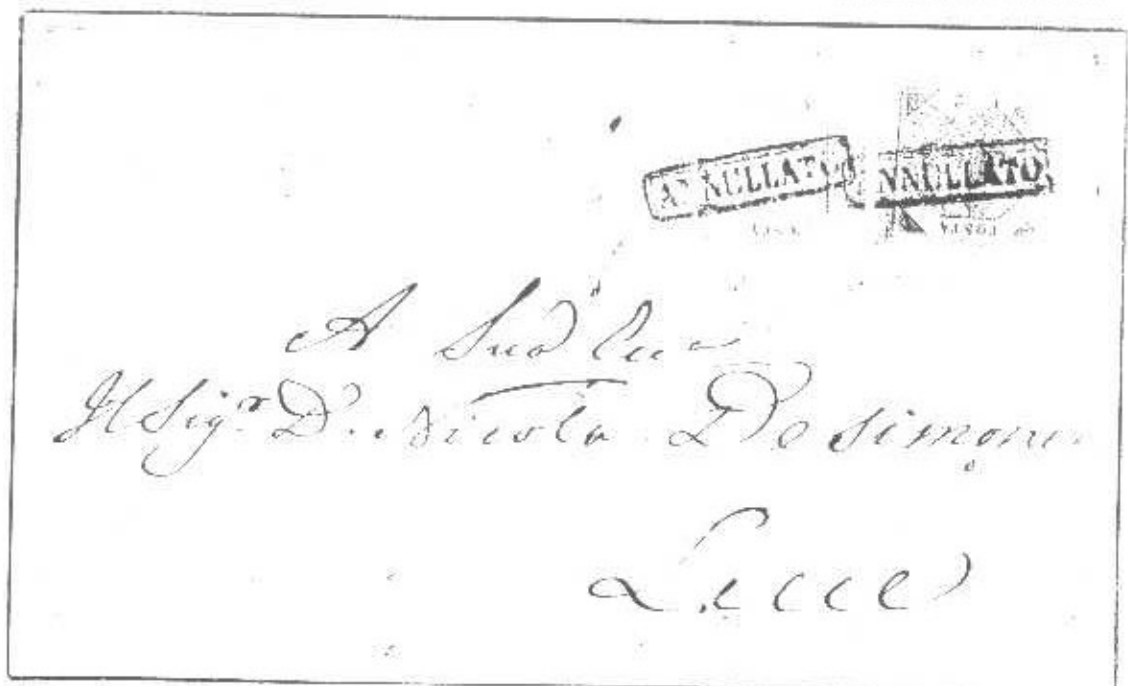 ANNULLATO ANNULLATO
POSTA
A Sua Ecc.a
Il Sigr. D. Nicola De simone
Lecce